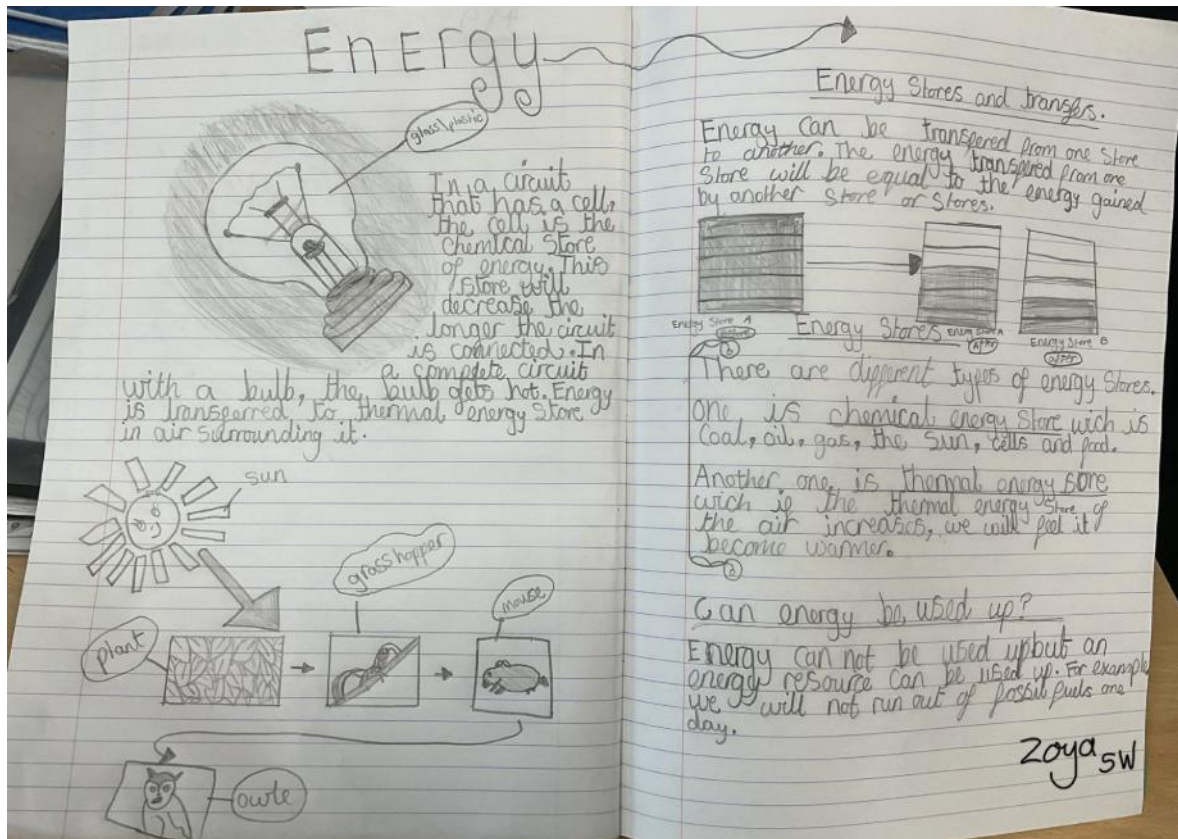 Energy
glass/plastic
In a circuit
that has a cell,
the cell is the
chemical store
of energy. This
store will
decrease the
longer the circuit
is connected. In
a complete circuit
with a bulb, the bulb gets hot. Energy
is transferred to thermal energy store
in air surrounding it.
sun
plant
grasshopper
mouse
owle
Energy Stores and transfers.
Energy can be transpered from one store
to another. The energy transpered from one
store will be equal to the energy gained
by another store or stores.
Energy Store A
before
Energy Store A
After
Energy Store B
after
Energy Stores
There are different types of energy stores.
One is chemical energy store wich is
coal, oil, gas, the sun, cells and food.
Another one is thermal energy store
wich is the thermal energy store of
the air increases, we will feel it
become warmer.
Can energy be used up?
Energy can not be used upbut an
energy resource can be used up. For example
we will not run out of fossil fuels one
day.
Zoya 5W